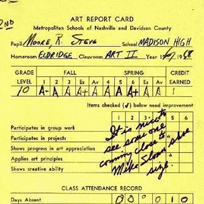 2ND
ART REPORT CARD
Metropolitan Schools of Nashville and Davidson County
Pupil MOORE, R. Steve School MADISON HIGH
Homeroom ELDRIDGE Classroom ART II Year 1968
GRADE LEVEL FALL SPRING CREDIT EARNED
10 A A A+ A A A+ 1
Items checked (✓) below need improvement
Participates in group work
Participates in projects
Shows progress in art appreciation
Applies art principles
Shows creative ability
It is nice to
see some one
coming close to
Mike Sloan's
size.
CLASS ATTENDANCE RECORD
Days Absent 0 0 0 1 0